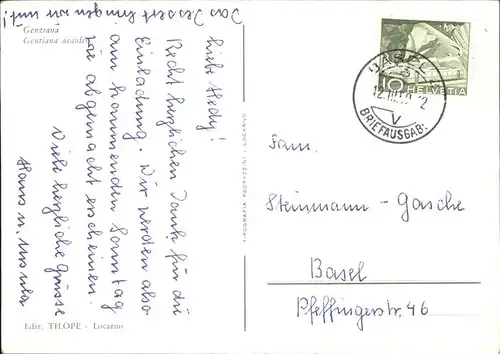 Das Dessert bringen wir mit!
Genziana
Gentiana acaulis
Liebe Hedy!
Recht herzlichen Dank für die
Einladung. Wir werden also
am kommenden Sonntag
wie abgemacht erscheinen.
Viele herzliche Grüsse
Hans u. Ursula
Edit. TILOPE - Locarno
TIPOGRAFIA PEDRAZZINI - LOCARNO
10
HELVETIA
BASEL 2
12.III.52
V
BRIEFAUSGABE
Fam.
Steinmann - Gasche
Basel
Pfeffingerstr. 46